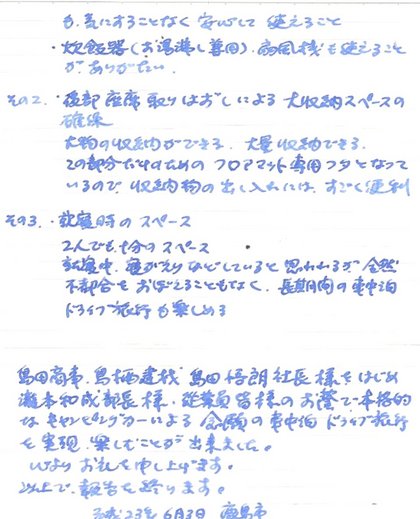 も、気にすることなく 安心して 使えること
・炊飯器(お湯沸し兼用)、扇風機も使えること
が、ありがたい。
その2. ・後部座席取りはずしによる 大収納スペースの
確保
大物の収納ができる、大量収納できる。
この部分だけのための フロアマット専用フタとなって
いるので、収納物の出し入れには、すごく便利
その3. ・就寝時の スペース
2人でも十分の スペース
就寝中、寝がえりなどしていると 思われるが 全然
不都合を おぼえることもなく、長期間の車中泊
ドライブ旅行も楽しめる
島田商事、鳥栖建機 島田悟朗社長様をはじめ
瀧本和成部長様、従業員皆様のお蔭で本格的
なキャンピングカーによる 念願の車中泊 ドライブ旅行
を実現、楽しむことが出来ました。
心よりお礼を申し上げます。
以上で、報告を終ります。
平成23年6月3日 鹿島市